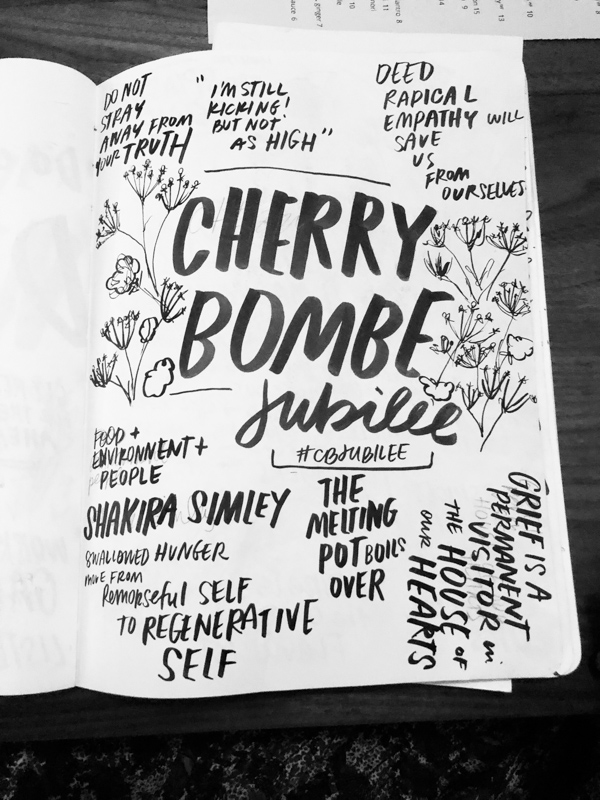 DO NOT
STRAY
AWAY FROM
YOUR TRUTH
"I'M STILL
KICKING!
BUT NOT
AS HIGH"
DEED
RADICAL
EMPATHY WILL
SAVE
US
FROM
OURSELVES
CHERRY
BOMBE
Jubilee
#CBJUBILEE
FOOD +
ENVIRONMENT +
PEOPLE
SHAKIRA SIMLEY
SWALLOWED HUNGER
MOVE FROM
Remorseful SELF
TO REGENERATIVE
SELF
THE
MELTING
POT BOILS
OVER
GRIEF IS A
PERMANENT
VISITOR in
THE HOUSE OF
OUR HEARTS